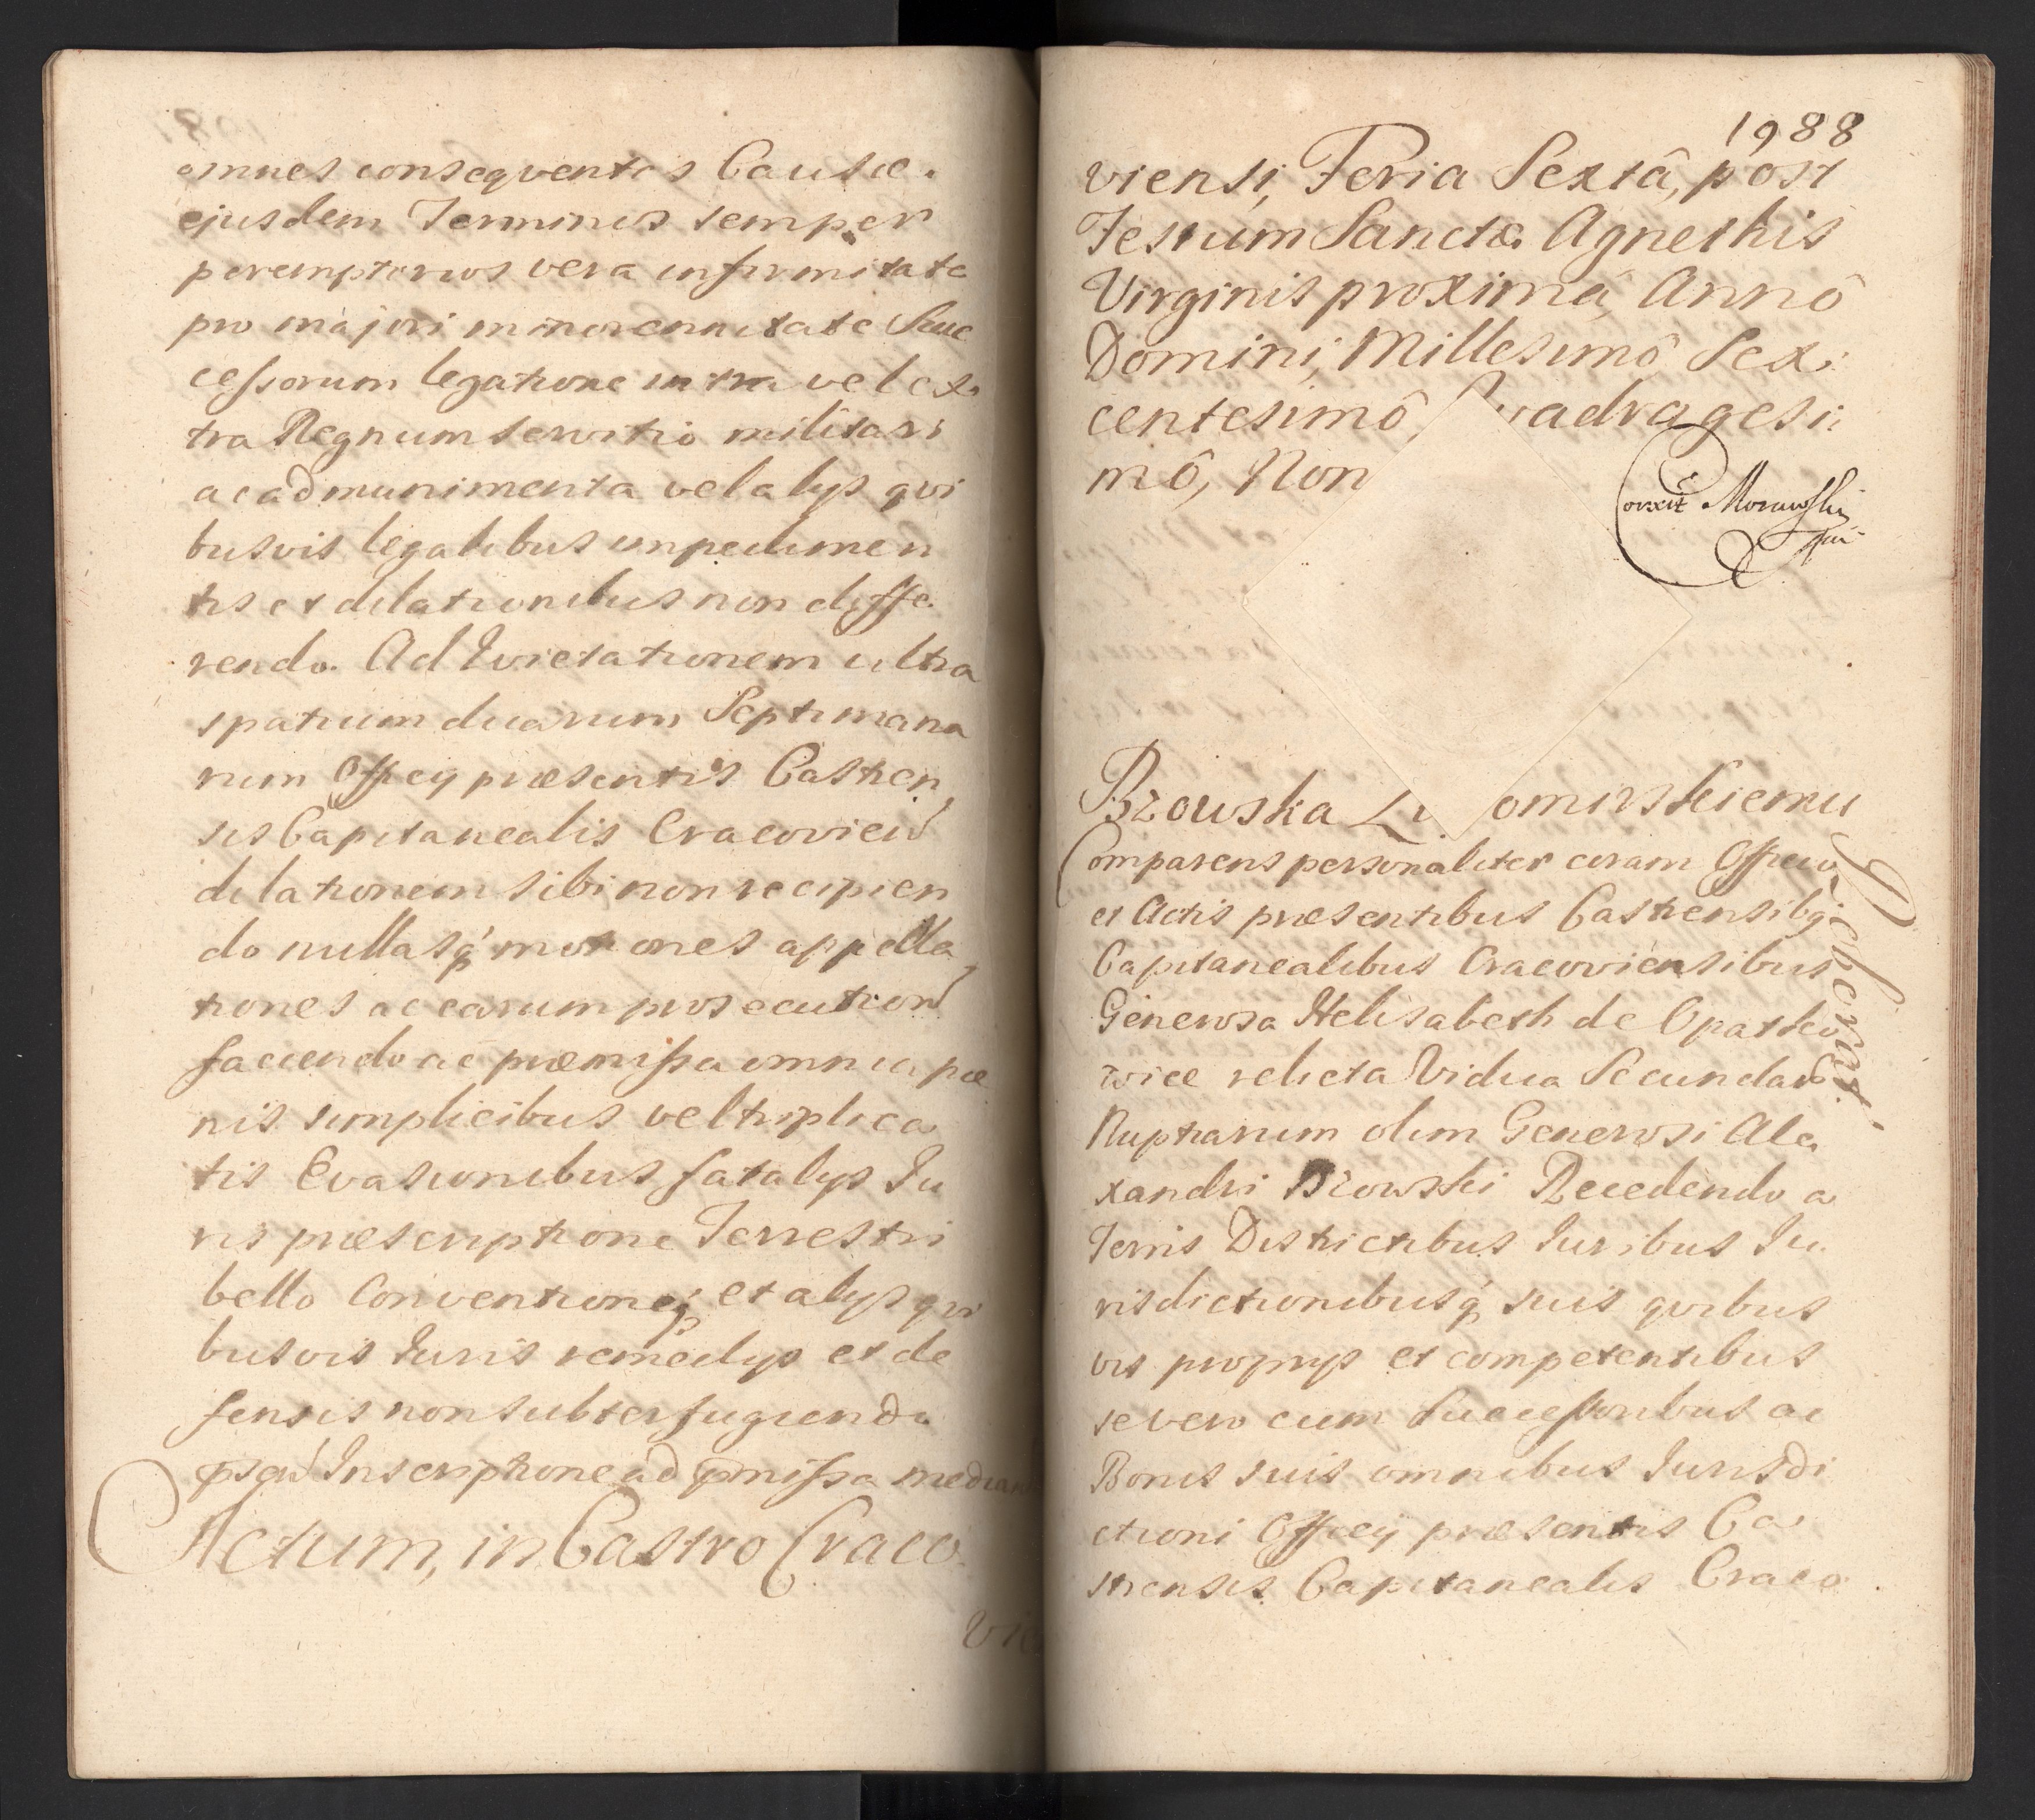 omnes conseqventes Causæ.
ejusdem Terminos semper
peremptorios vera infirmitate
pro majori minorennitate Suc
cessorum legatione intra vel ex
tra Regnum servitio militari
ac ad munimenta vel alys qvi
busvis legalibus impedimen
tis et dilationibus non diffe
rendo. Ad Evictationem ultra
spatium duarum Septimana
rum Officy præsentis Castren
sis Capitanealis Cracovien
dilationem sibi non recipien
do nullasq motiones appella
tiones ac earum prosecution
faciendo ac præmissa omnia pœ
nis simplicibus vel triplica
tis Evasionibus fatalys Ju
ris præscriptione Terrestri
bello Conventioneq et alys qvi
busvis Juris remedys et de
fensis non subterfugiendo
Inscriptione ad pmissa median
Actum, in Castro Craco
vie
1988
viensi, Feria Sextâ, post
Festum Sanctæ Agnethis
Virginis proximâ, Annô
Domini, Millesimô Sex:
centesimô, Quadragesi:
mô, Non
Corexit Morawski
mpr
Brzowska L omirskiemu
Comparens personaliter coram Officio
et Actis præsentibus Castrensibq
Capitanealibus Cracoviensibus
Generosa Helisabeth de Opatko
wice relicta Vidua Secundar
Nuptiarum olim Generosi Ale
xandri Brzowski Recedendo a
Terris Districtibus Juribus Ju
risdictionibusq suis qvibus
vis proprys et competentibus
se vero cum Successoribus ac
Bonis suis omnibus Jurisdi
ctioni Officy præsentis Ca
strensis Capitanealis Craco